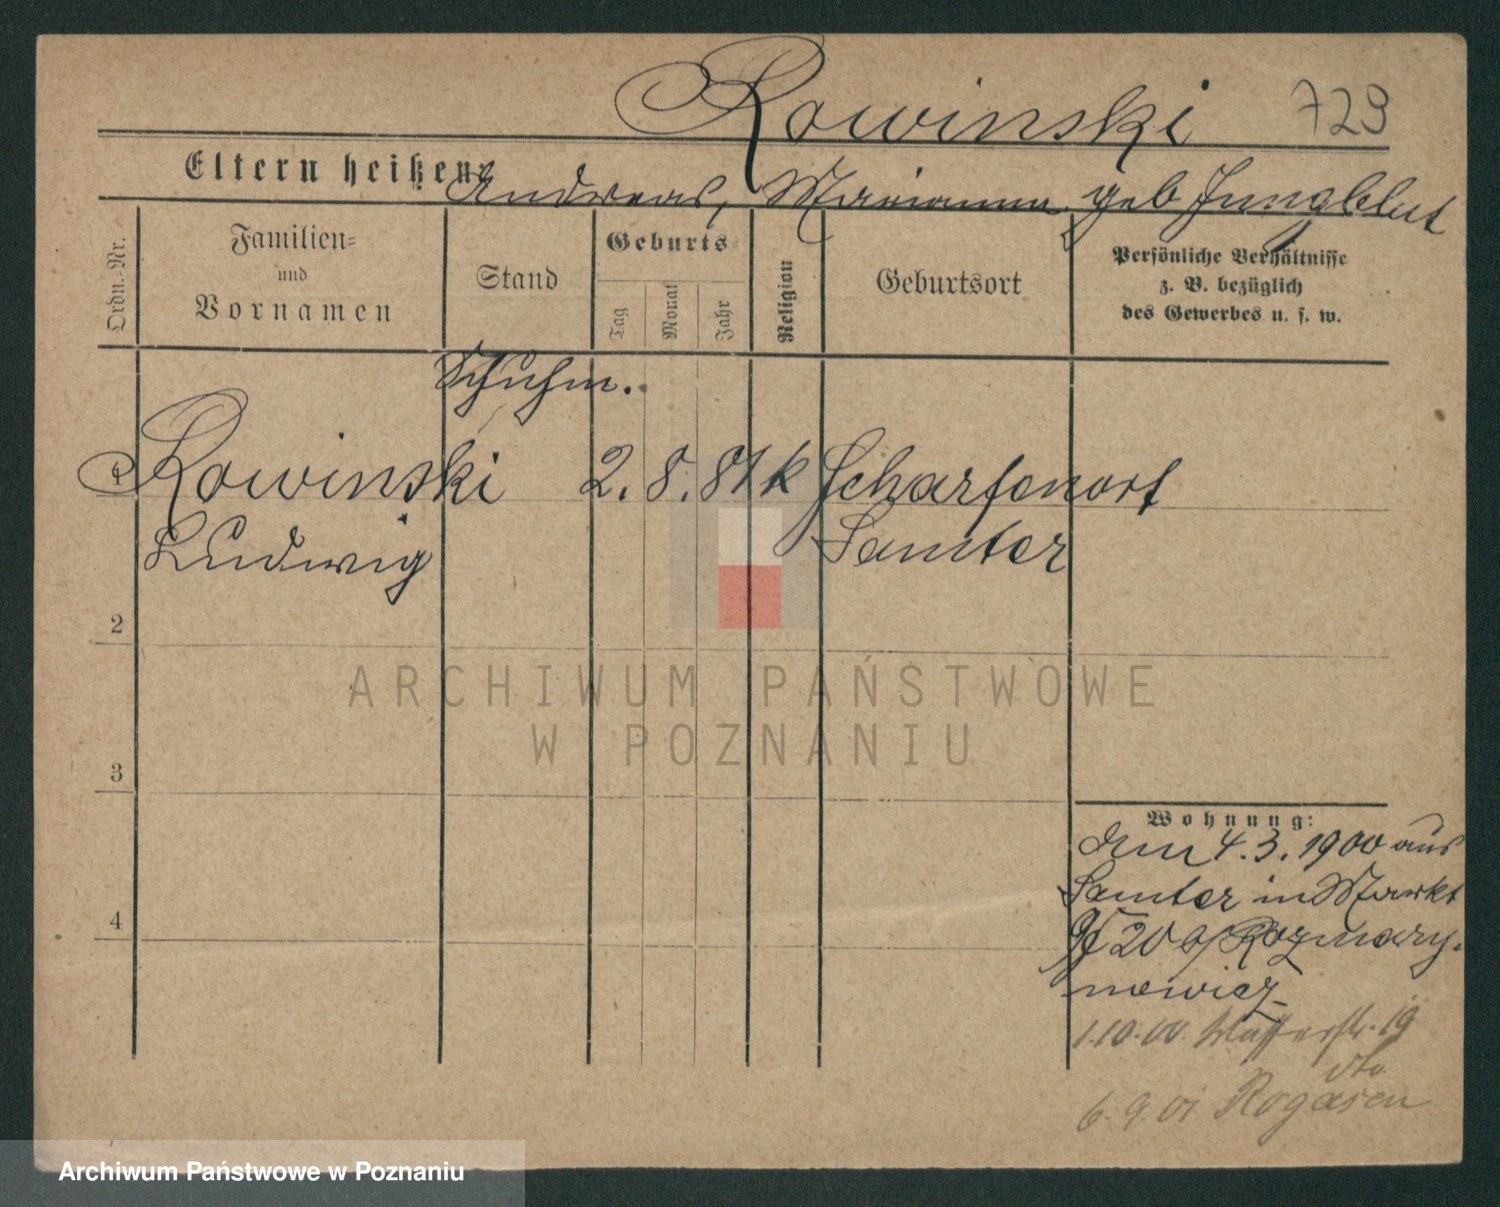 Rowinski 729
Eltern heißen: Andreas, Marianna geb Jungblut
Ordn.-Nr.
Familien-
und
Vornamen
Stand
Geburts-
Tag
Monat
Jahr
Religion
Geburtsort
Persönliche Verhältnisse
z. B. bezüglich
des Gewerbes u. s. w.
Schuhm.
1 Rowinski 2. 8. 81 k Scharfenort
Ludwig Samter
2
3
4
ARCHIWUM PAŃSTWOWE
W POZNANIU
Wohnung:
den 4.3.1900 aus
Samter in Markt
20 b/ Rozmary-
nowicz
1.10.00. Wasserstr. 19
dto
6.9.01 Rogasen
Archiwum Państwowe w Poznaniu